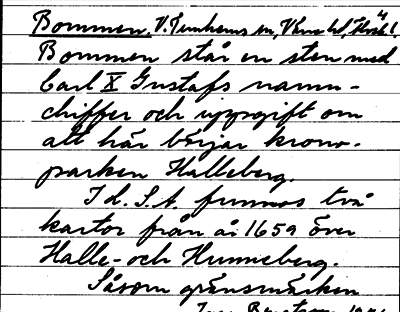 Bommen, V. Tunhems sn, V
Bommen står en sten med
Carl X Gustafs namn-
chiffer och uppgift om
att här börjar krono-
parken Halleberg.
I d. S.A. funnos två
kartor från år 1659 över
Halle- och Hunneberg.
Såsom gränsmärken